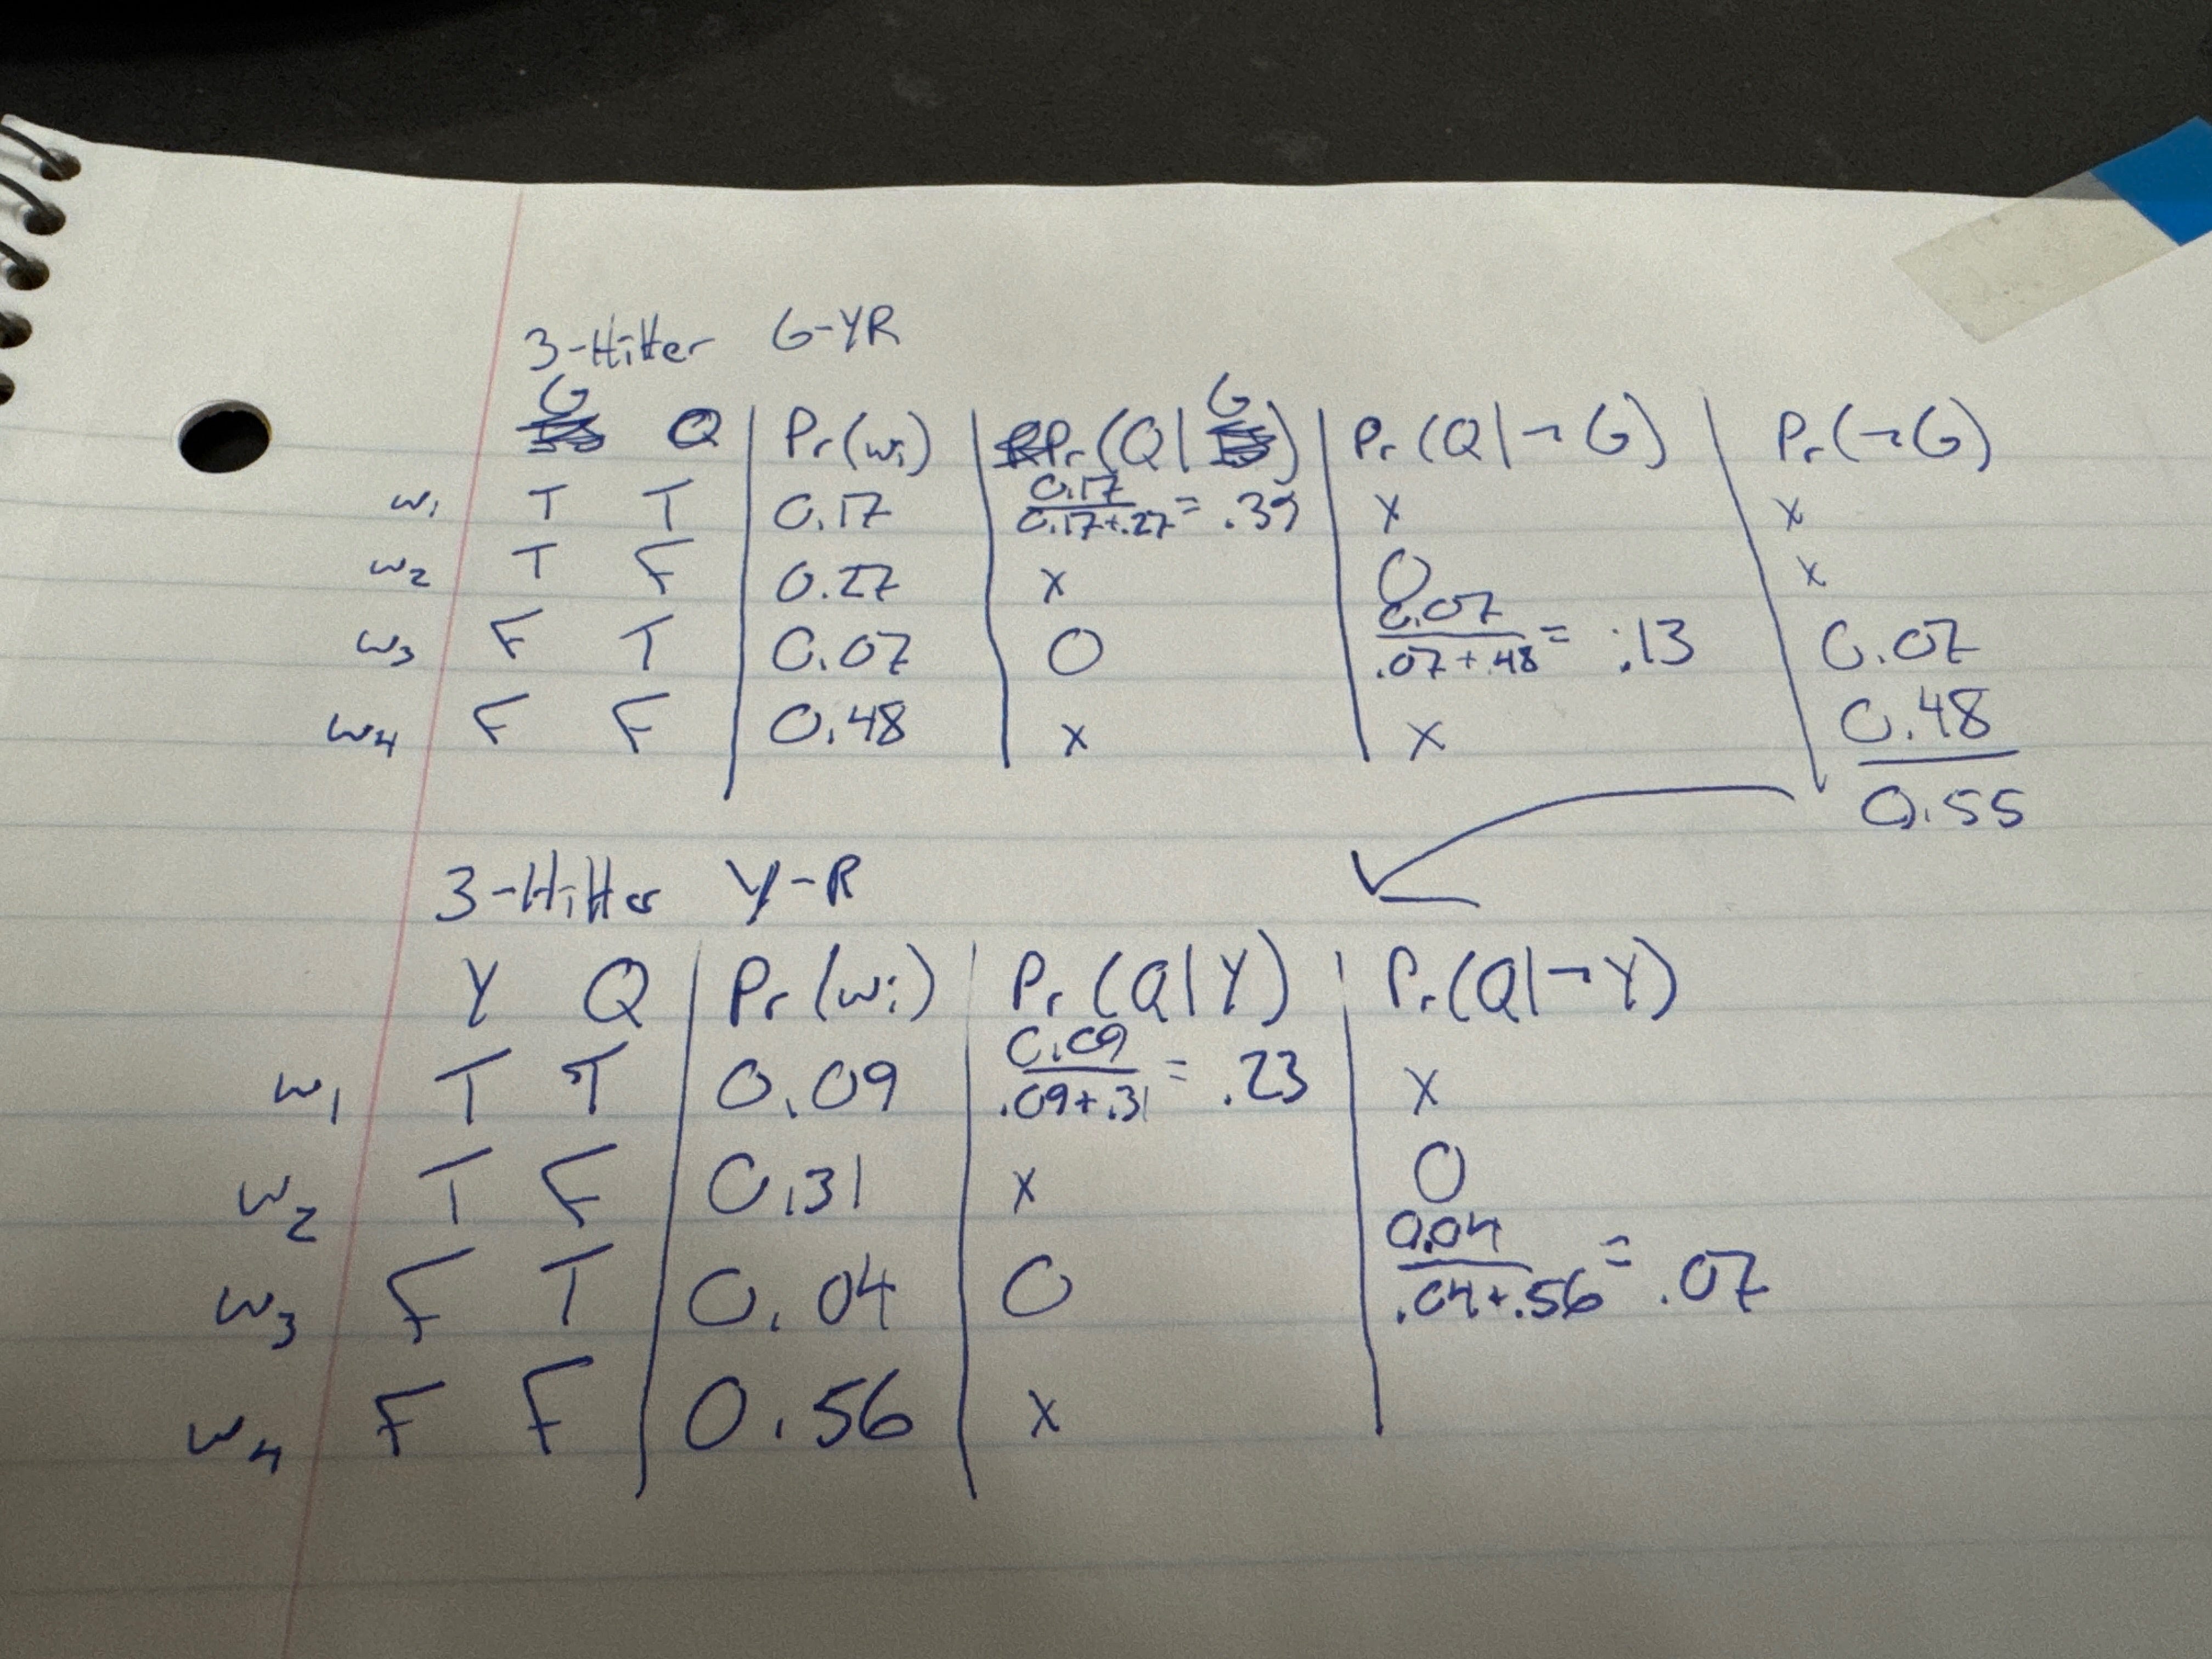 3-Hitter G-YR
G Q Pr(wᵢ) Pr(Q|G) Pr(Q|¬G) Pr(¬G)
w₁ T T 0.17 0.17/0.17+.27 = .39 x x
w₂ T F 0.27 x 0 x
w₃ F T 0.07 0 0.07/.07+.48 = .13 0.07
w₄ F F 0.48 x x 0.48
0.55
3-Hitter Y-R
Y Q Pr(wᵢ) Pr(Q|Y) Pr(Q|¬Y)
w₁ T T 0.09 0.09/.09+.31 = .23 x
w₂ T F 0.31 x 0
w₃ F T 0.04 0 0.04/.04+.56 = .07
w₄ F F 0.56 x